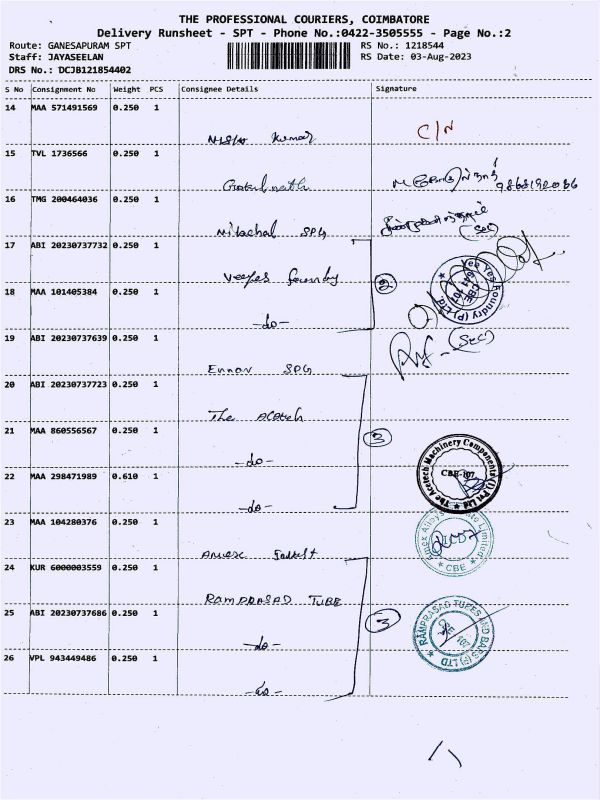 THE PROFESSIONAL COURIERS, COIMBATORE
Delivery Runsheet - SPT - Phone No.:0422-3505555 - Page No.:2
Route: GANESAPURAM SPT RS No.: 1218544
Staff: JAYASEELAN RS Date: 03-Aug-2023
DRS No.: DCJB121854402
S No Consignment No Weight PCS Consignee Details Signature
14 MAA 571491569 0.250 1
Kumar C/N
15 TVL 1736566 0.250 1
9868192086
16 TMG 200464036 0.250 1
Nilachal SPG (Sec)
17 ABI 20230737732 0.250 1
Veeyes Foundry Vee Yes Foundry (P) Ltd. CBE 641 107
18 MAA 101405384 0.250 1
-do-
19 ABI 20230737639 0.250 1 (Sec)
Ennar SPG
20 ABI 20230737723 0.250 1
The Acetech
21 MAA 860556567 0.250 1 3
-do- The Acetech Machinery Components (I) Pvt Ltd CBE-107
22 MAA 298471989 0.610 1
-do-
23 MAA 104280376 0.250 1
Limited CBE
24 KUR 6000003559 0.250 1
RAMPRASAD TUBE
25 ABI 20230737686 0.250 1 3
-do- RAMPRASAD TUBES AND BARS (P) LTD
26 VPL 943449486 0.250 1
-do-